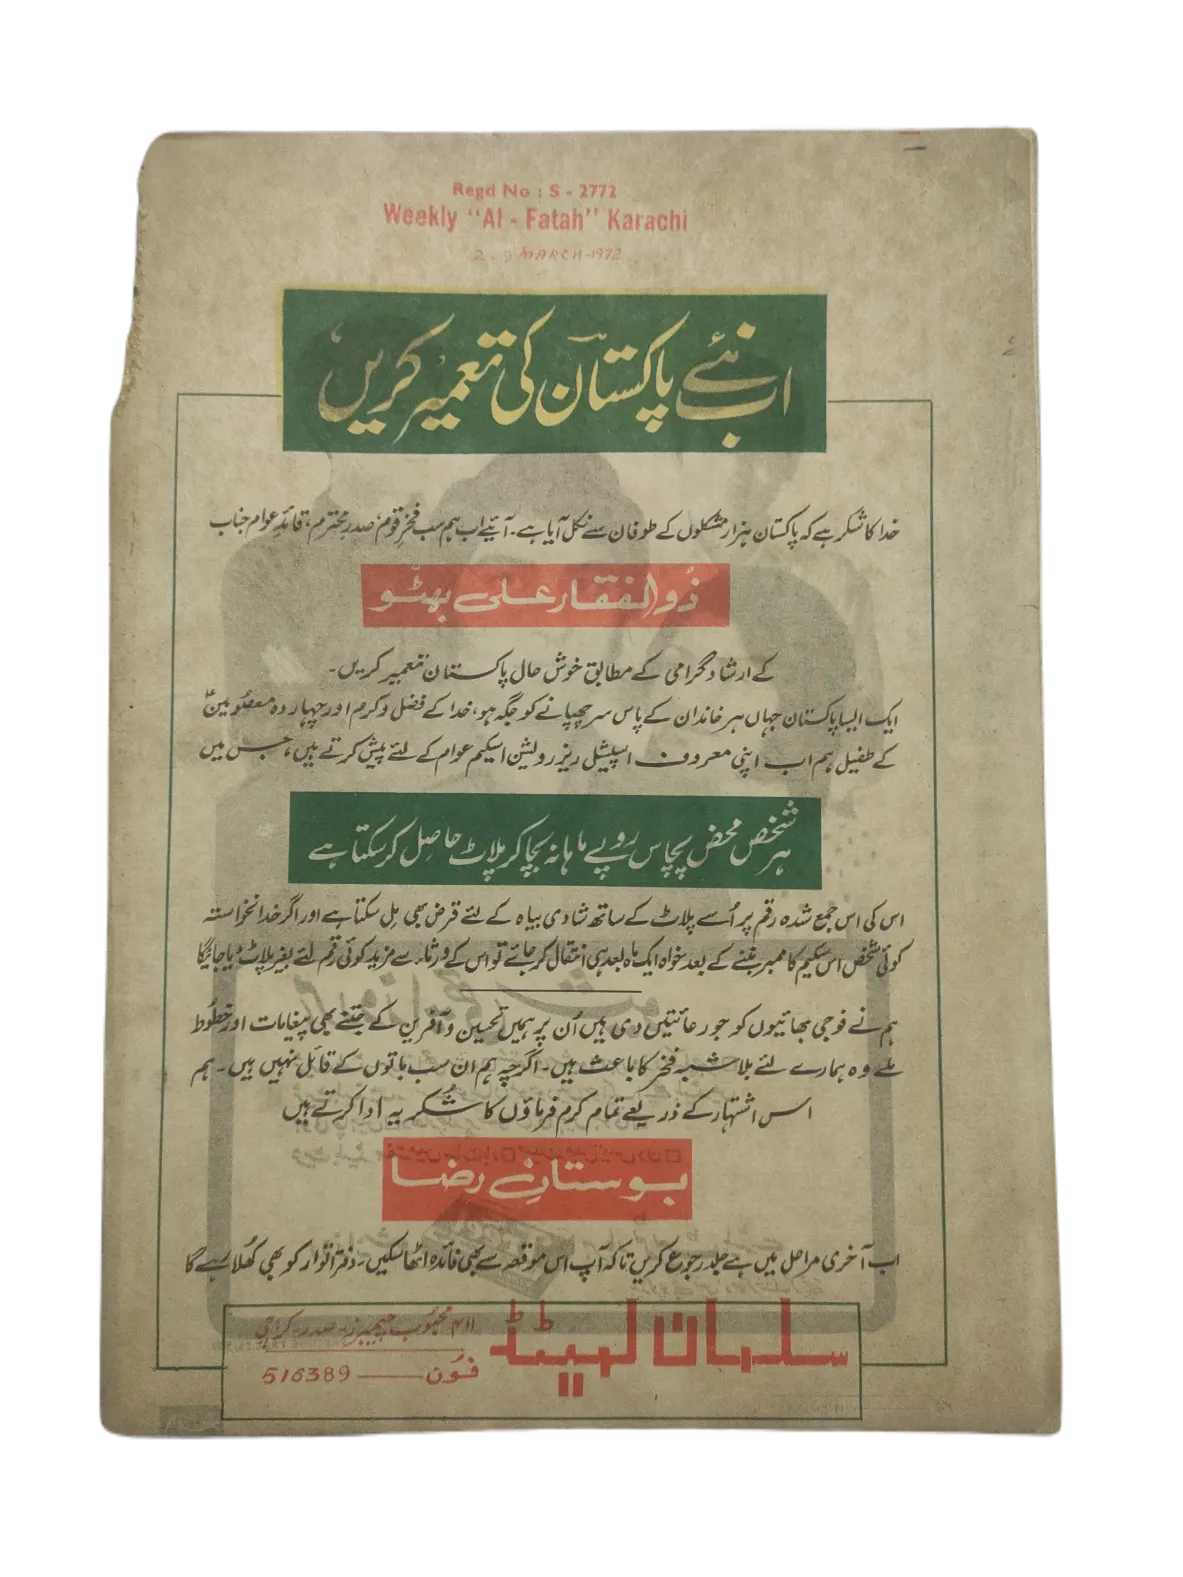 Regd No : S - 2772
Weekly "Al - Fatah" Karachi
2 - 9 MARCH-1972
اب نئے پاکستان کی تعمیر کریں
خدا کا شکر ہے کہ پاکستان ہزار مشکلوں کے طوفان سے نکل آیا ہے۔ آئیے اب ہم سب فخرِ قوم، صدرِ محترم، قائدِ عوام جناب
ذُوالفقار علی بھٹّو
کے ارشادِ گرامی کے مطابق خوش حال پاکستان تعمیر کریں۔
ایک ایسا پاکستان جہاں ہر خاندان کے پاس سر چھپانے کو جگہ ہو، خدا کے فضل و کرم اور چہاردہ معصُومینؑ
کے طفیل ہم اب اپنی معروف اسپیشل ریزرویشن اسکیم عوام کے لئے پیش کرتے ہیں، جس میں
ہر شخص محض پچاس روپے ماہانہ بچا کر پلاٹ حاصل کر سکتا ہے
اس کی اس جمع شدہ رقم پر اُسے پلاٹ کے ساتھ شادی بیاہ کے لئے قرض بھی مِل سکتا ہے اور اگر خدانخواستہ
کوئی شخص اس سکیم کا ممبر بننے کے بعد خواہ ایک ماہ بعد ہی انتقال کر جائے تو اس کے ورثاء سے مزید کوئی رقم لئے بغیر پلاٹ دیا جائیگا
ہم نے فوجی بھائیوں کو جو رعائتیں دی ہیں اُن پر ہمیں تحسین و آفرین کے جتنے بھی پیغامات اور خطُوط
ملے وہ ہمارے لئے بلاشبہ فخر کا باعث ہیں۔ اگرچہ ہم ان سب باتوں کے قائل نہیں ہیں۔ ہم
اس اشتہار کے ذریعے تمام کرم فرماؤں کا شُکریہ ادا کرتے ہیں
بوستانِ رضا
اب آخری مراحل میں ہے جلد رجوع کریں تاکہ آپ اس موقعہ سے بھی فائدہ اٹھا سکیں۔ دفتر اتوار کو بھی کھُلا رہے گا
سلمان لمیٹڈ
۴۱۱ محبُوب چیمبرز۔ صدر۔ کراچی
فون — 516389